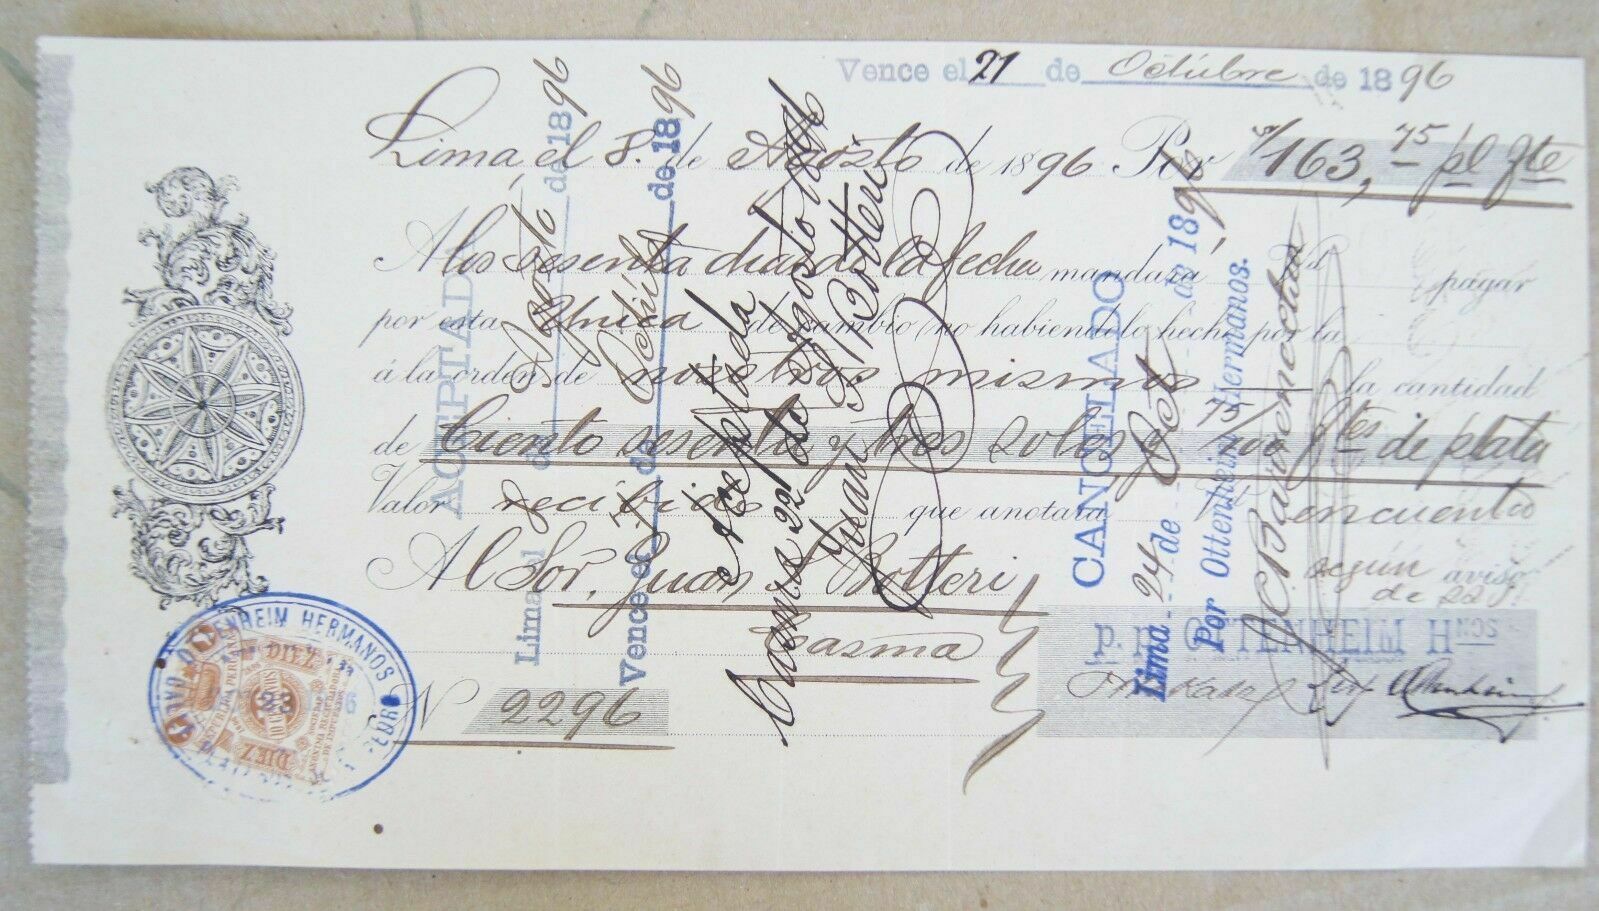 Vence el 21 de Octubre de 1896
Lima, el 8. de Agosto de 1896 Por S/163,75 pl Gte
A los sesenta dias de la fecha mandará Vd pagar
por esta Unica de cambio (no habiendolo hecho por la
á la orden de nosotros mismos la cantidad
de Ciento sesenta y tres soles y 75/100 Gtes de plata
Valor recibido que anotará Vd en cuenta
según aviso
de
Al Sor. Juan Botteri
Casma
P. P. OTTENHEIM Hnos
Nº 2296
ACEPTADO
Lima el de Agosto de 1896
Vence el de de 1896
Aceptada
Casma 22 de Agosto 1896
Juan Botteri
CANCELADO
Lima 24 de Oct de 1896
Por Ottenheim Hermanos.
OTTENHEIM HERMANOS
DIEZ
DIEZ